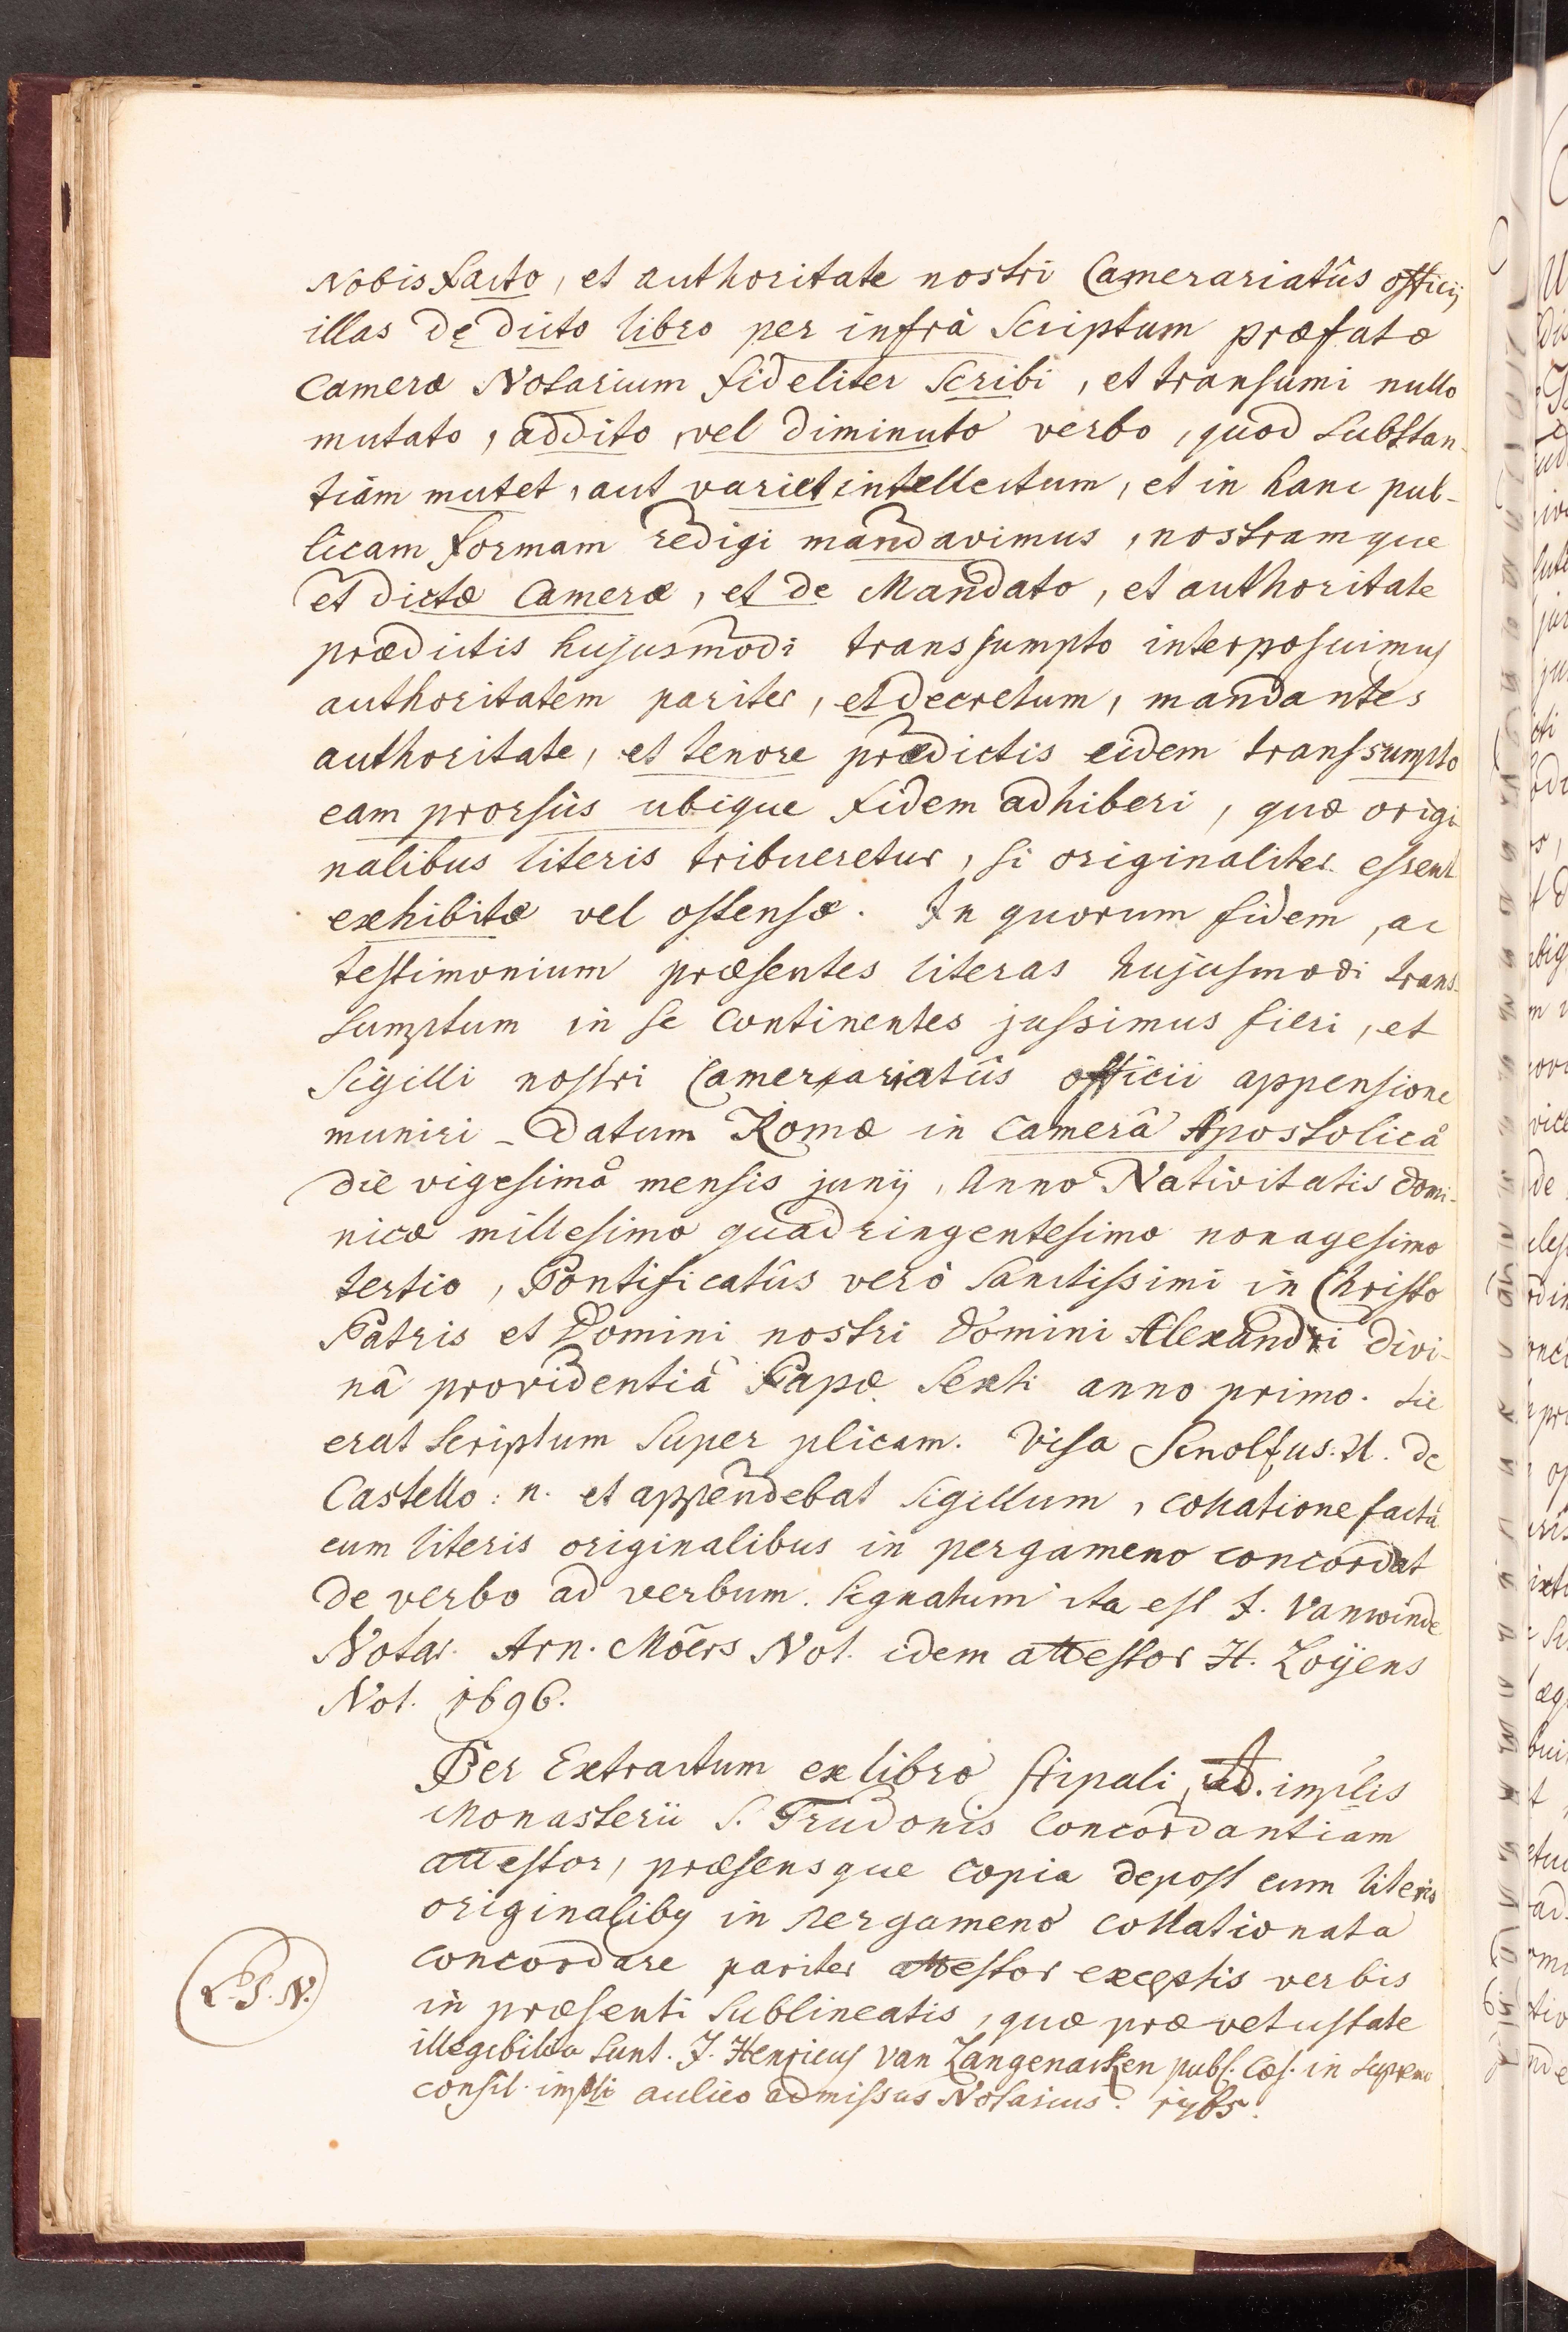 Nobis facto, et authoritate nostri Camerariatûs officij
illas de dicto libro per infrà scriptum præfatæ
Cameræ Notarium fideliter scribi, et transumi nullo
mutato, addito, vel diminuto verbo, quod substan-
tiam mutet, aut variet intellectum, et in hanc pub-
licam formam redigi mandavimus, nostramque
et dictæ Cameræ, et de Mandato, et authoritate
prædictis hujusmodi transsumpto interposuimus
authoritatem pariter, et decretum, mandantes
authoritate, et tenore prædictis eidem transsumpto
eam prorsùs ubique fidem adhiberi, quæ origi-
nalibus literis tribueretur, si originaliter essent
exhibitæ vel ostensæ. In quorum fidem, ac
testimonium præsentes literas hujusmodi trans-
sumptum in se continentes jussimus fieri, et
sigilli nostri Camerariatûs officii appensione
muniri - Datum Romæ in Camerâ Apostolicâ
die vigesimâ mensis junij, Anno Nativitatis Domi-
nicæ millesimo quadringentesimo nonagesimo
tertio, Pontificatûs verò Sanctissimi in Christo
Patris et Domini nostri Domini Alexandri divi-
nâ providentiâ Papæ Sexti anno primo. sic
erat scriptum super plicam. Visa Sinolfus. U. de
Castello: n. et appendebat sigillum, collatione factâ
cum literis originalibus in pergameno concordat
de verbo ad verbum. signatum ita est J. Vanwinde
Notar. Arn. Möers Not. idem attestor H. Loÿens
Not. 1696.
Per Extractum ex libro stipali, impl̃is
Monasterii S. Trudonis Concordantiam
attestor, præsensque copia depost cum literis
originalibus in pergameno collationata
concordare pariter attestor exceptis verbis
L. S. N.
in præsenti sublineatis, quæ præ vetustate
illegibilia sunt. J. Henricus van Langenacken publ. Cæs. in supremo
consil. impl̃i aulico admissus Notarius. 1765.